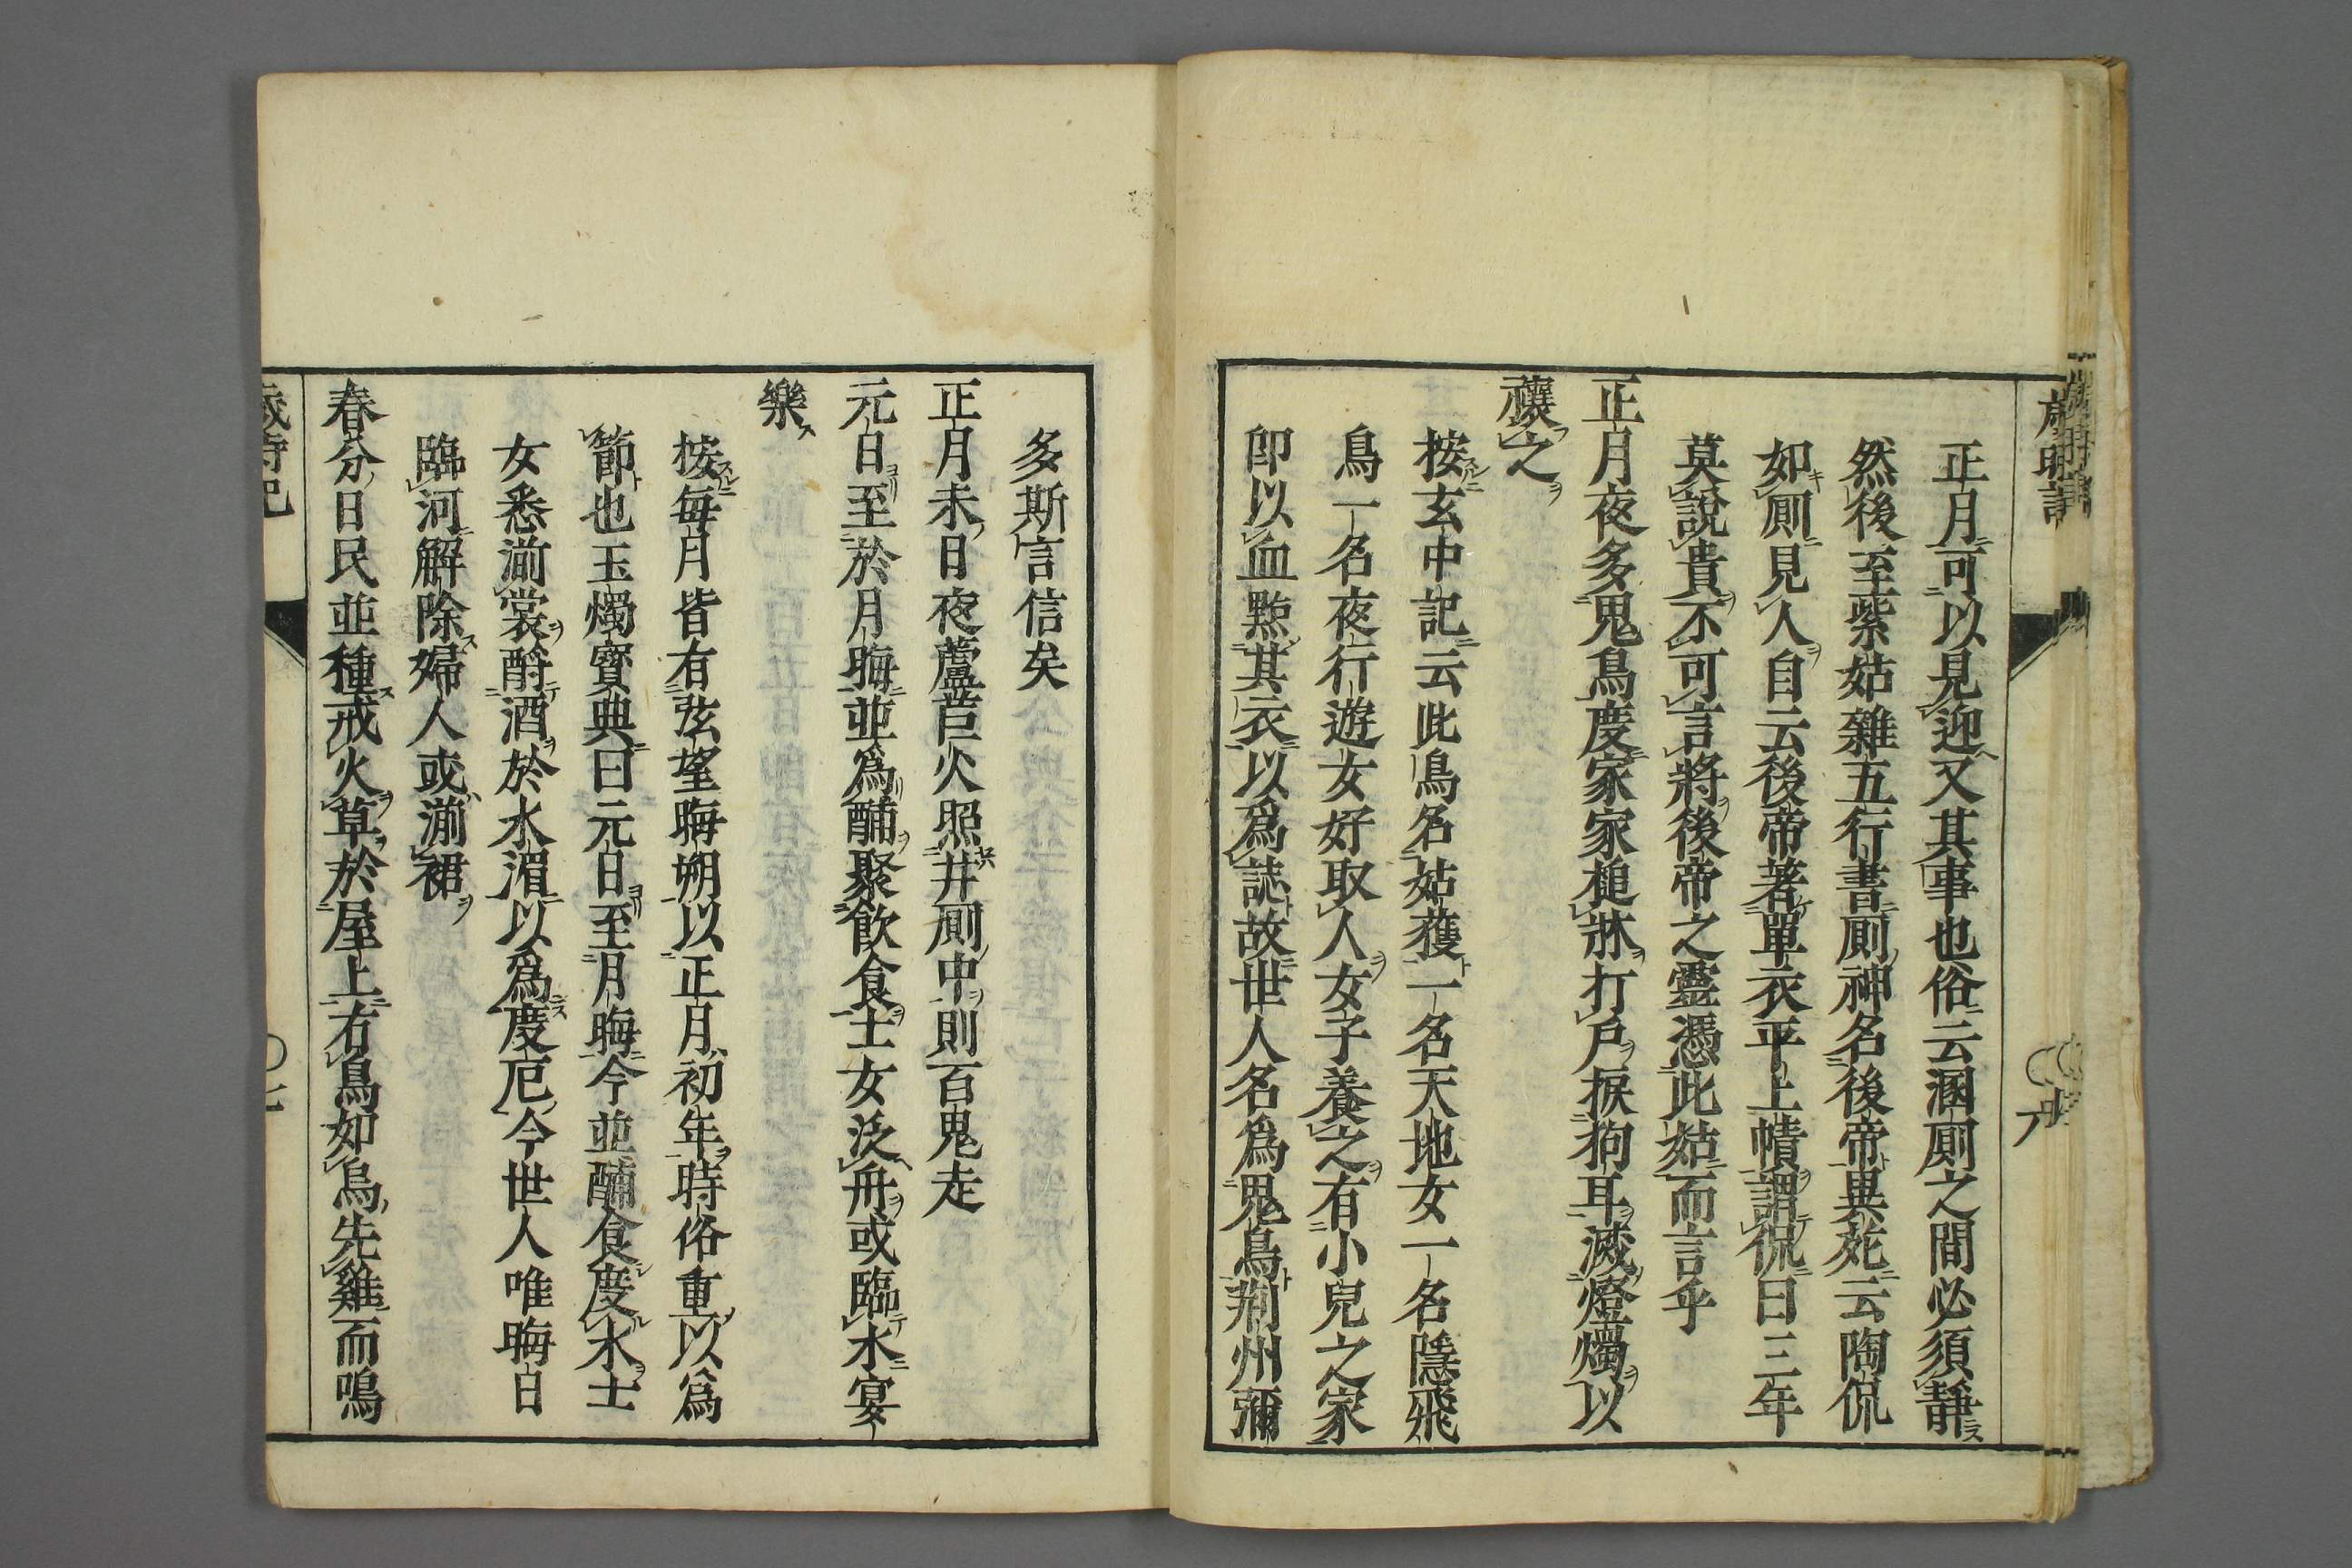 正月可以見迎又其事也俗云溷厠之間必須靜
然後至紫姑雜五行書厠神名後帝異苑云陶侃
如厠見人自云後帝著單衣平上幘謂侃曰三年
莫說貴不可言將後帝之靈憑此姑而言乎
正月夜多鬼鳥度家家槌牀打戶捩狗耳滅燈燭以
禳之
按玄中記云此鳥名姑獲一名天地女一名隱飛
鳥一名夜行遊女好取人女子養之有小兒之家
卽以血㸃其衣以爲誌故世人名爲鬼鳥荆州彌
多斯言信矣
正月未日夜蘆苣火照井厠中則百鬼走
元日至於月晦並爲酺聚飲食士女泛舟或臨水宴
樂
按每月皆有弦望晦朔以正月初年時俗重以爲
節也玉燭寳典曰元日至月晦今並酺食度水士
女悉湔裳酹酒於水湄以爲度厄今世人唯晦日
臨河解除婦人或湔裙
春分日民並種戒火草於屋上有鳥如烏先雞而鳴
歲時記
七